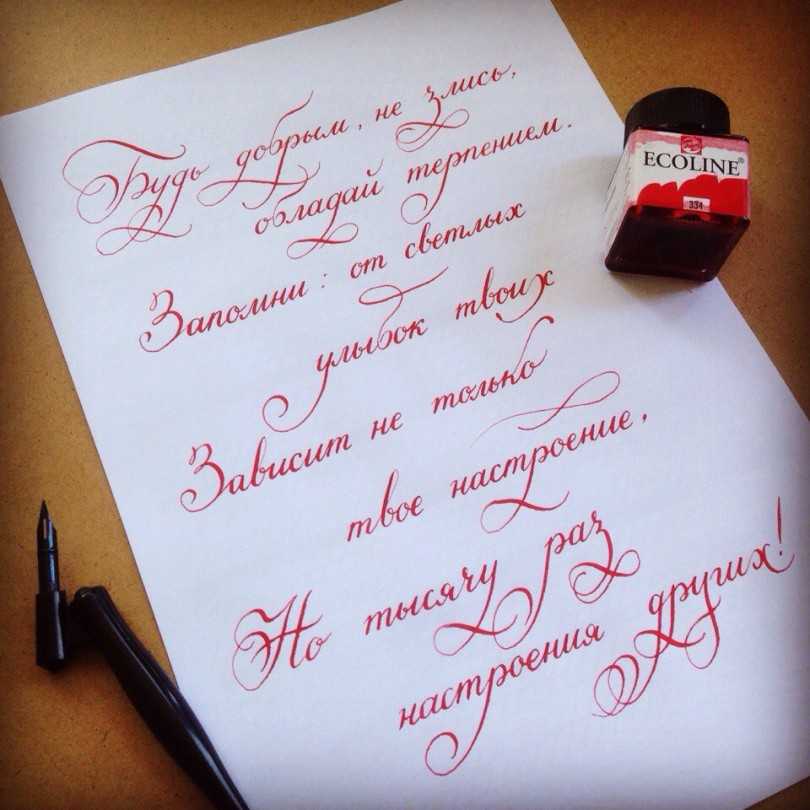 Будь добрым, не злись,
обладай терпением.
Запомни: от светлых
улыбок твоих
Зависит не только
твое настроение,
Но тысячу раз
настроения других!
ECOLINE®
334